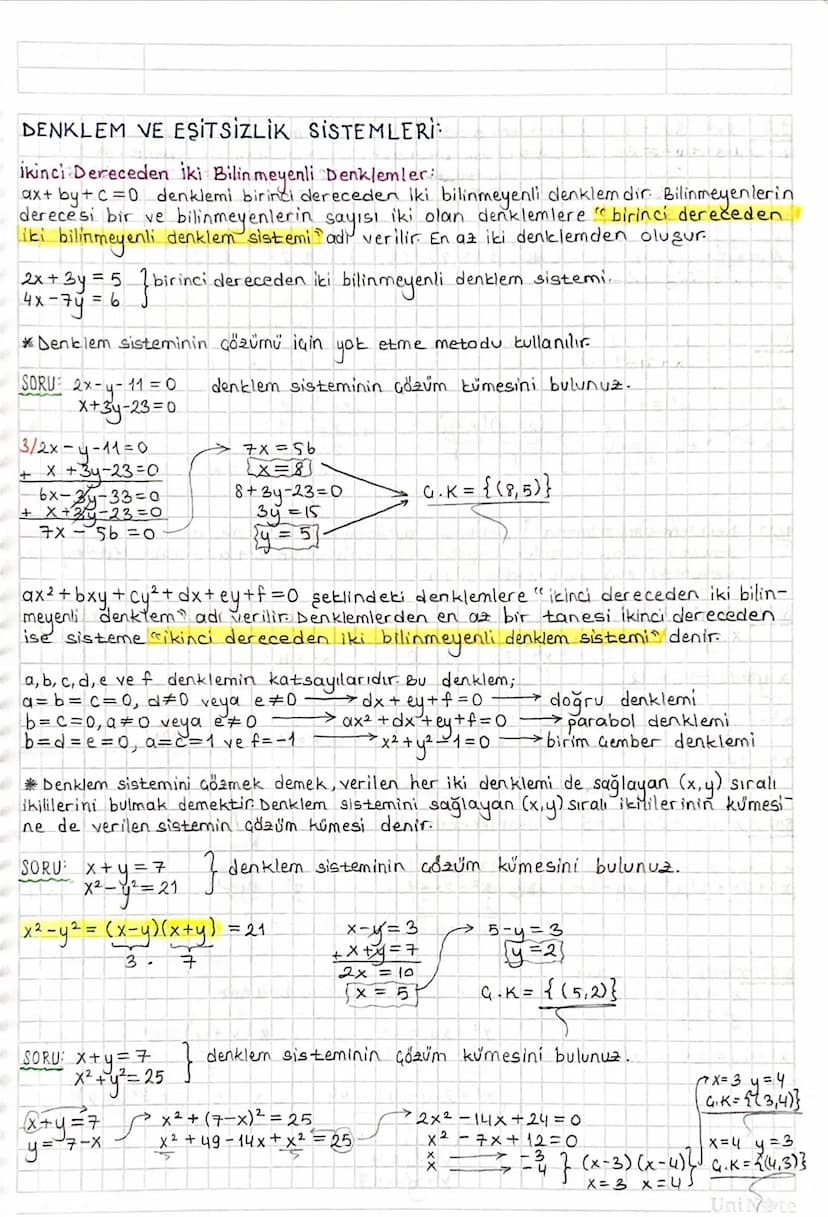 DENKLEM VE EŞİTSİZLİK SİSTEMLERİ:
İkinci Dereceden İki Bilinmeyenli Denklemler:
ax+by+c=0 denklemi birinci dereceden iki bilinmeyenli denklemdir. Bilinmeyenlerin
derecesi bir ve bilinmeyenlerin sayısı iki olan denklemlere "birinci dereceden
iki bilinmeyenli denklem sistemi" adı verilir. En az iki denklemden oluşur.
2x+3y=5 } birinci dereceden iki bilinmeyenli denklem sistemi.
4x-7y=6
* Denklem sisteminin çözümü için yok etme metodu kullanılır.
SORU: 2x-y-11=0 denklem sisteminin çözüm kümesini bulunuz.
x+3y-23=0
3/2x-y-11=0
+ x+3y-23=0
6x-3y-33=0
+ x+3y-23=0
7x-56=0
7x=56
x=8
8+3y-23=0
3y=15
y=5
Ç.K={(8,5)}
ax²+bxy+cy²+dx+ey+f=0 şeklindeki denklemlere "ikinci dereceden iki bilin-
meyenli denklem" adı verilir. Denklemlerden en az bir tanesi ikinci dereceden
ise sisteme "ikinci dereceden iki bilinmeyenli denklem sistemi" denir.
a,b,c,d,e ve f denklemin katsayılarıdır. Bu denklem;
a=b=c=0, d≠0 veya e≠0 → dx+ey+f=0 → doğru denklemi
b=c=0, a≠0 veya e≠0 → ax²+dx+ey+f=0 → parabol denklemi
b=d=e=0, a=c=1 ve f=-1 → x²+y²-1=0 → birim çember denklemi
* Denklem sistemini çözmek demek, verilen her iki denklemi de sağlayan (x,y) sıralı
ikililerini bulmak demektir. Denklem sistemini sağlayan (x,y) sıralı ikililerinin kümesi-
ne de verilen sistemin çözüm kümesi denir.
SORU: x+y=7 } denklem sisteminin çözüm kümesini bulunuz.
x²-y²=21
x²-y²=(x-y)(x+y)=21
3 . 7
x-y=3
+ x+y=7
2x=10
x=5
5-y=3
y=2
Ç.K={(5,2)}
SORU: x+y=7 } denklem sisteminin çözüm kümesini bulunuz.
x²+y²=25
x+y=7
y=7-x
x²+(7-x)²=25
x²+49-14x+x²=25
2x²-14x+24=0
x²-7x+12=0
x → -3
x → -4 } (x-3)(x-4)
x=3 x=4
x=3 y=4
Ç.K={(3,4)}
x=4 y=3
Ç.K={(4,3)}
UniNote